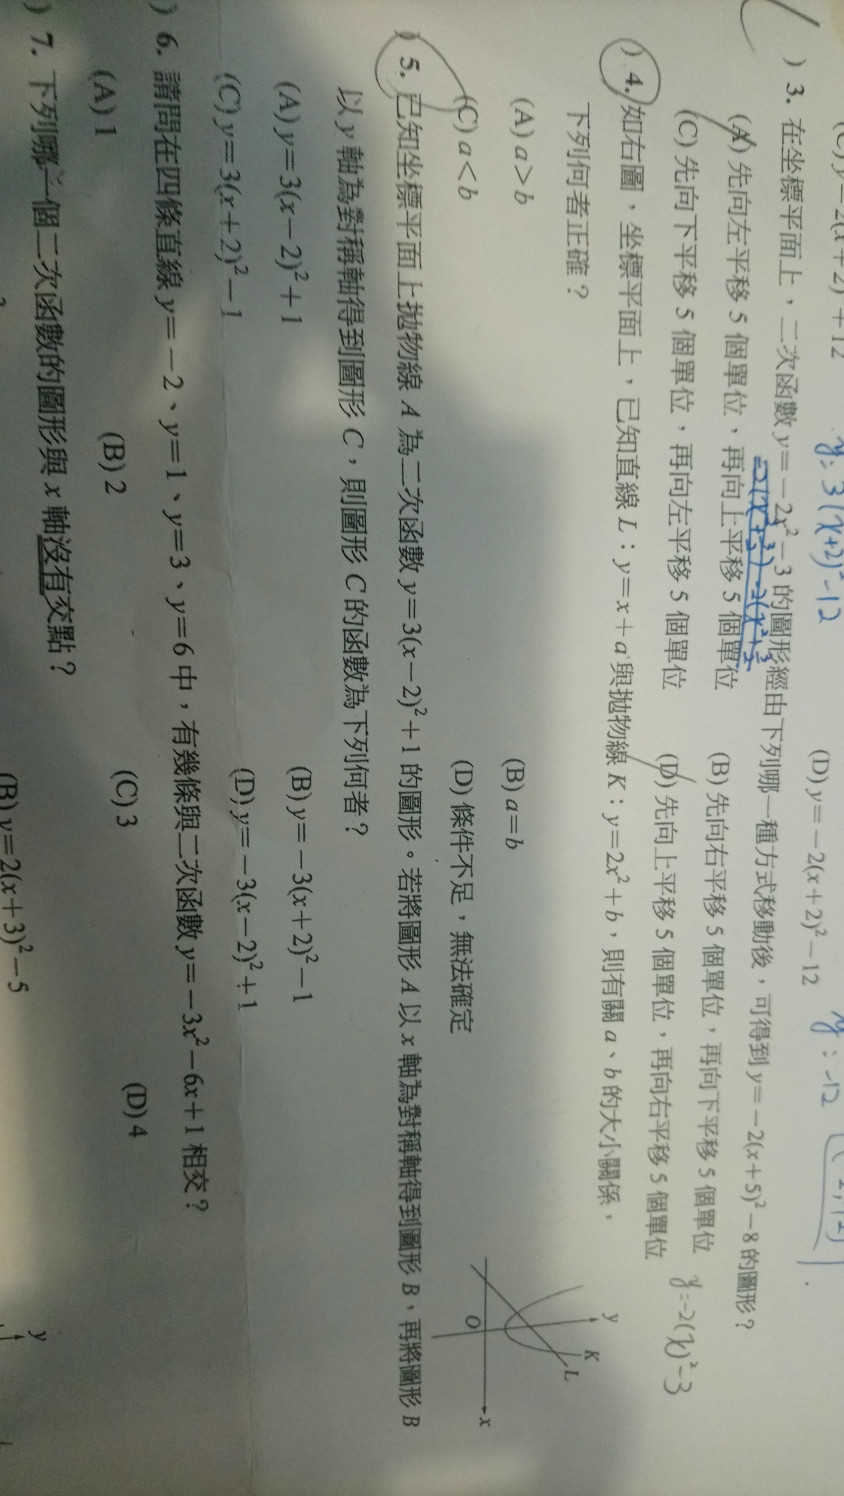 (C) y=-2(x+2)²+12
(D) y=-2(x+2)²-12
y=3(x+2)²-12
y=-12
) 3. 在坐標平面上，二次函數 y=-2x²-3 的圖形經由下列哪一種方式移動後，可得到 y=-2(x+5)²-8 的圖形？
(A) 先向左平移 5 個單位，再向上平移 5 個單位
(B) 先向右平移 5 個單位，再向下平移 5 個單位
(C) 先向下平移 5 個單位，再向左平移 5 個單位
(D) 先向上平移 5 個單位，再向右平移 5 個單位
y=-2(x)²-3
) 4. 如右圖，坐標平面上，已知直線 L：y=x+a 與拋物線 K：y=2x²+b，則有關 a、b 的大小關係，
下列何者正確？
(A) a>b
(B) a=b
(C) a<b
(D) 條件不足，無法確定
y
K
L
O
x
) 5. 已知坐標平面上拋物線 A 為二次函數 y=3(x-2)²+1 的圖形。若將圖形 A 以 x 軸為對稱軸得到圖形 B，再將圖形 B
以 y 軸為對稱軸得到圖形 C，則圖形 C 的函數為下列何者？
(A) y=3(x-2)²+1
(B) y=-3(x+2)²-1
(C) y=3(x+2)²-1
(D) y=-3(x-2)²+1
) 6. 請問在四條直線 y=-2、y=1、y=3、y=6 中，有幾條與二次函數 y=-3x²-6x+1 相交？
(A) 1
(B) 2
(C) 3
(D) 4
) 7. 下列哪一個二次函數的圖形與 x 軸沒有交點？
(B) y=2(x+3)²-5
y